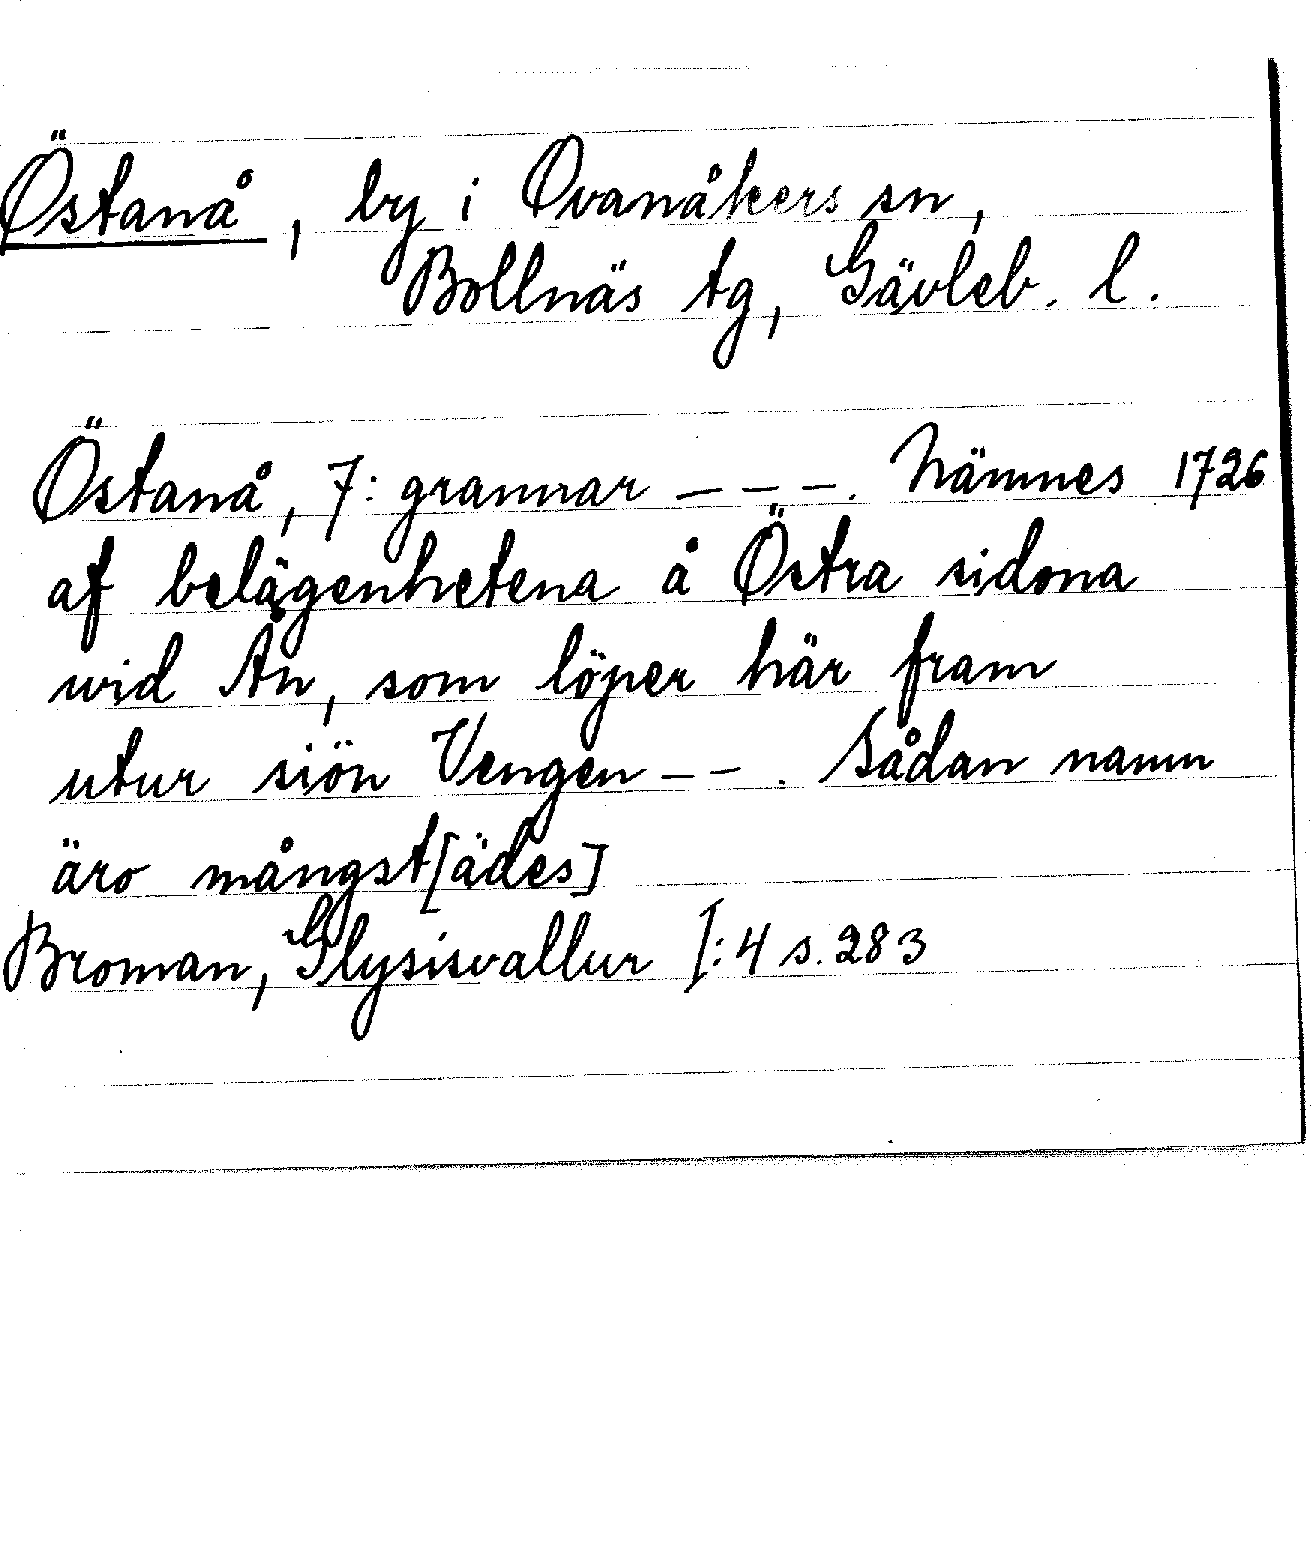 Östanå, by i Ovanåkers sn,
Bollnäs tg, Gävleb. l.
Östanå, 7: grannar – – –. Nämnes 1726
af belägenhetena å Östra sidona
wid Ån, som löper här fram
utur siön Vengen – –. Sådan namn
äro mångst[ädes]
Broman, Glysisvallur I:4 s. 283